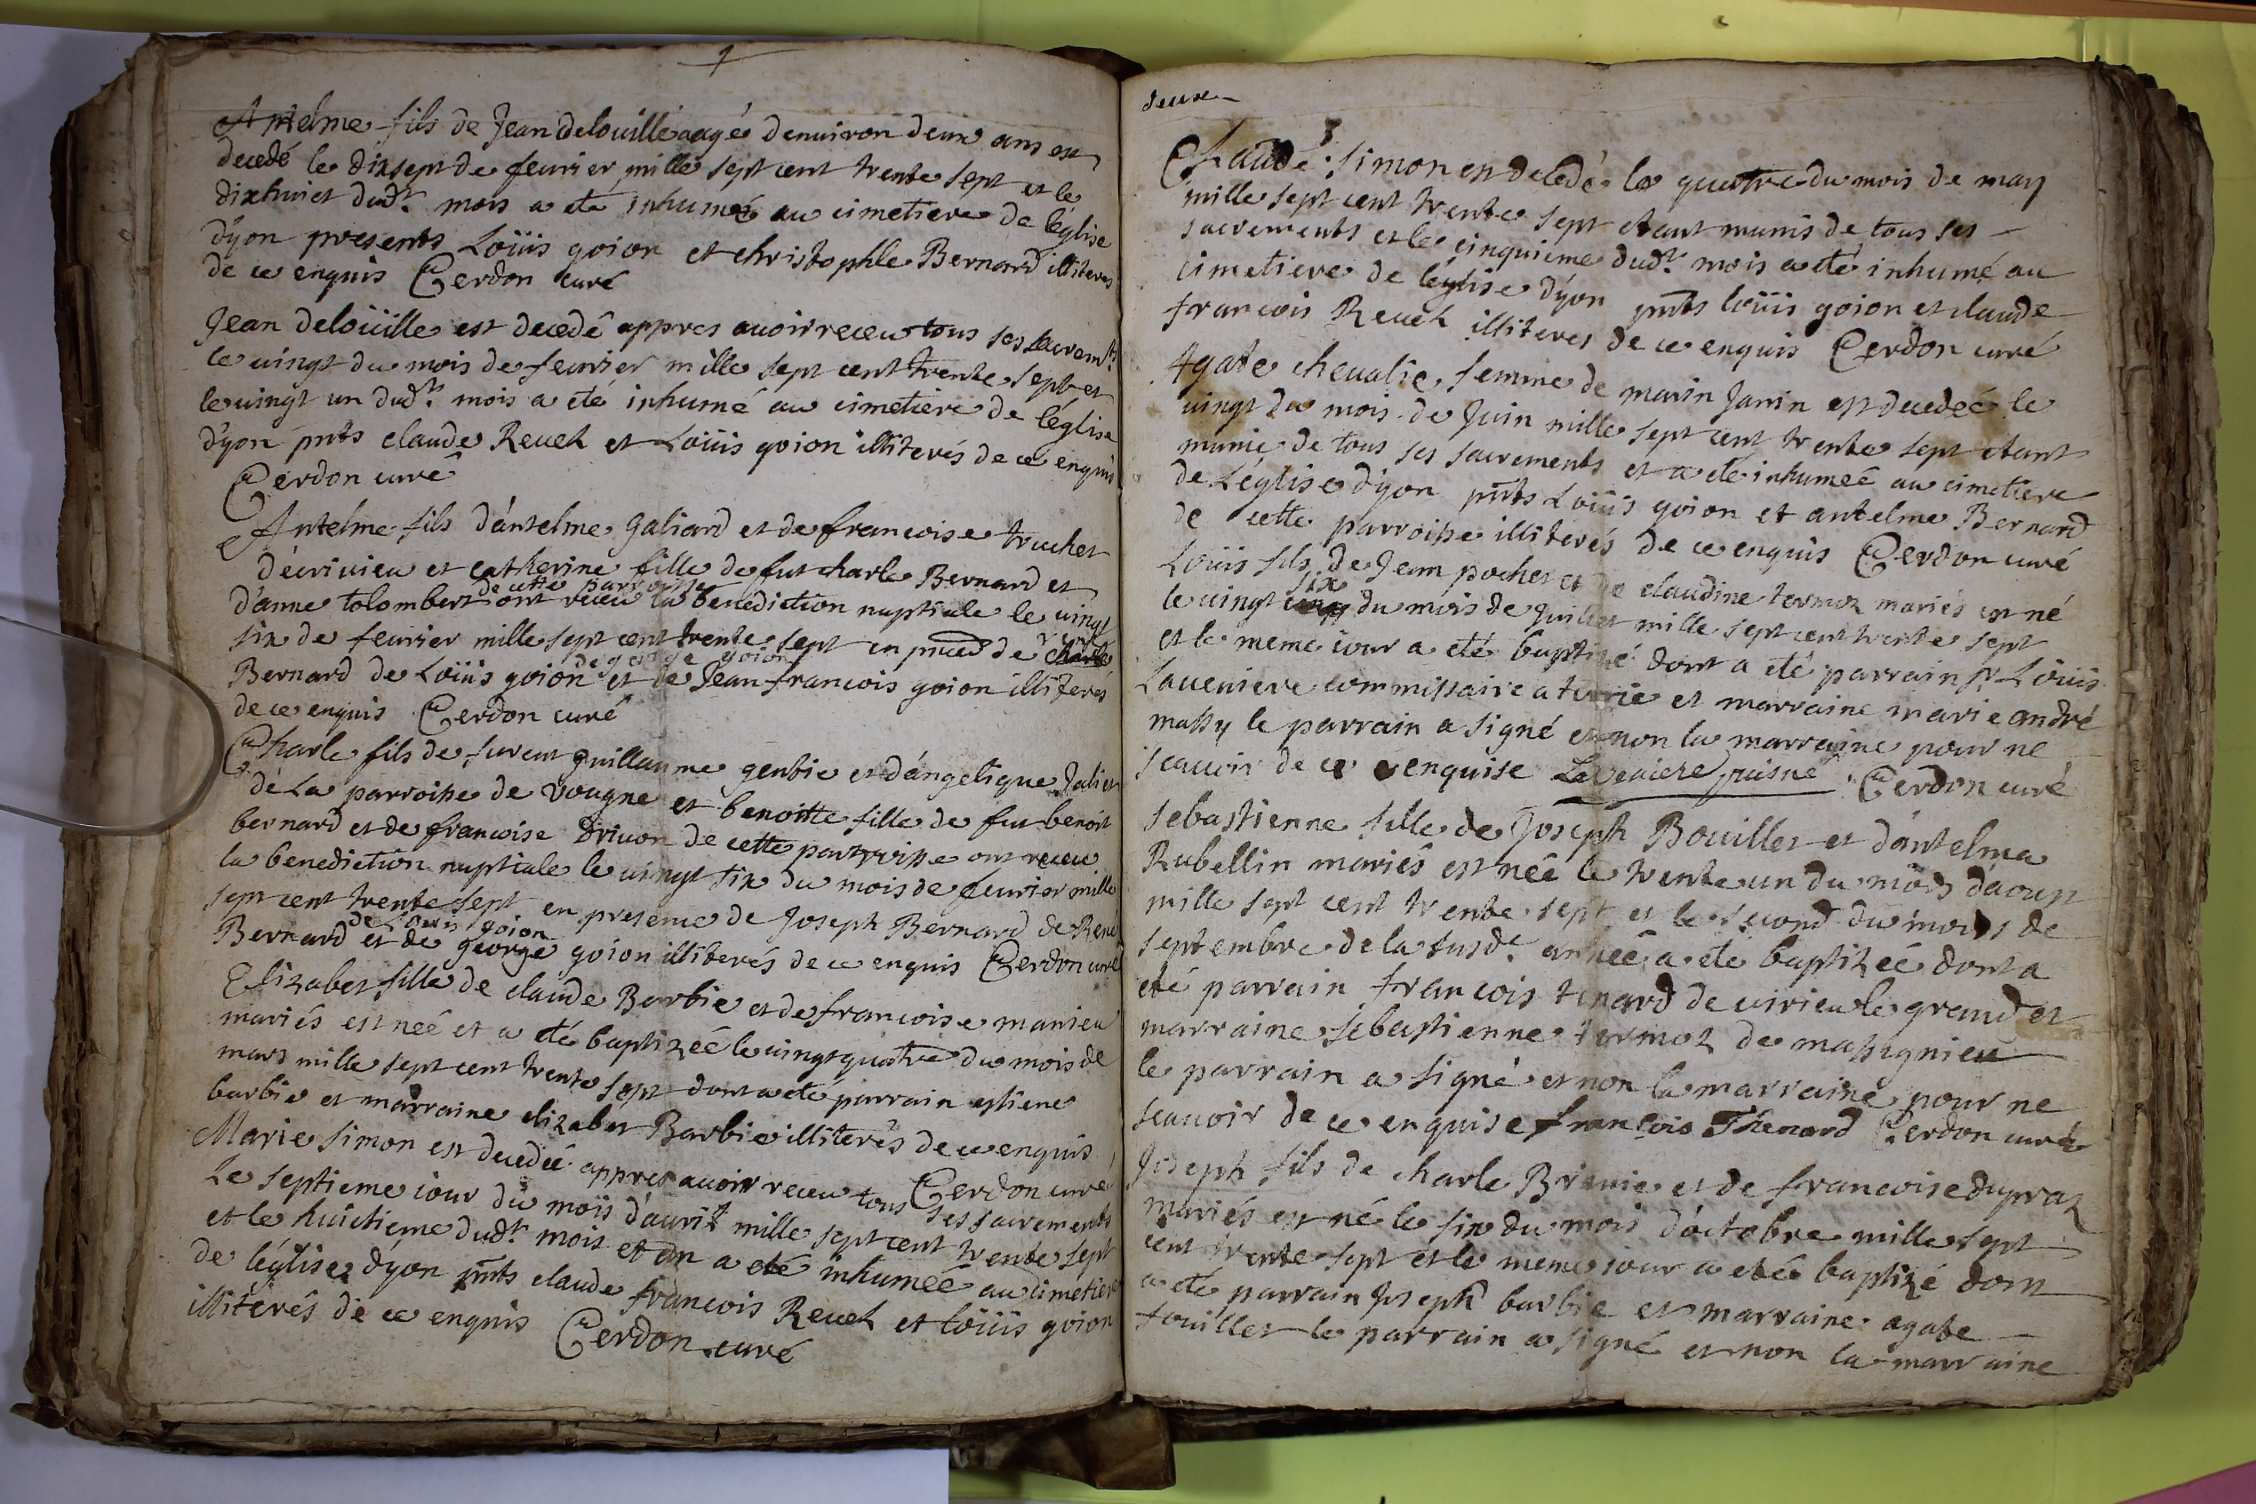 Antelme fils de Jean delouille aagé denuiron deux ans est
decedé le dixsept de feurier mille sept cent trente sept et le
dixhuict dudt. mois a eté inhumé au cimetiere de léglise
dÿon presents Loüis goion et christophle Bernard illiteres
de ce enquis Cerdon curé
Jean deloüille est decedé appres auoir receu tous ses sacremts
le uingt du mois de feurier mille sept cent trente sept et
le uingt un dudt. mois a eté inhumé au cimetiere de léglise
dÿon pnts claude Reuel et Loüis goion illiterés de ce enquis
Cerdon curé
Antelme fils dántelme galiard et de francoise truchet
décriuieu et catherine fille de fut charle Bernard et
de cette parroisse
dánne tolombert ont receu la benediction nuptiale le uingt
six de feurier mille sept cent trente sept en pnced de
de george goion
Bernard de Loüis goion et de Jean francois goion illiterés
de ce enquis Cerdon curé
Charle fils de fureut guillaume gentie et dángelique Jalier
dé La parroisse de vougne et benoitte fille de fut benoit
bernard et de francoise Driuon de cette parroisse ont receu
la benediction nuptiale le uingt six du mois de feurier mille
sept cent trente sept en presence de Joseph Bernard de René
de Loüis goion
Bernard et de george goion illiterés de ce enquis Cerdon curé
Elizabet fille de claude Barbie et de francoise manieu
mariés est neé et a eté baptizeé le uingt quatre du mois de
mars mille sept cent trente sept dont a eté parrain estiene
barbie et marraine elizabet Barbie illiterés de ce enquis
Cerdon curé
Marie Simon est decedeé appres auoir receu tous ses sacrements
Le septieme iour du mois dáuril mille sept cent trente sept
et le huictieme dudt. mois et an a eté inhumeé au cimetiere
de léglise dÿon pnts claude francois Reuel et loüis goion
illiterés de ce enquis Cerdon curé
deuxe
Claude Simon est decedé le quattre du mois de may
mille sept cent trente sept etant munis de tous ses
sacrements et le cinquieme dudt. mois a eté inhumé au
cimetiere de léglise dÿon pnts loüis goion et claude
francois Reuel illiteres de ce enquis Cerdon curé
Agate cheualie femme de marin Janin est decedeé le
uingt du mois de Juin mille sept cent trente sept etant
munie de tous ses sacrements et a eté inhumeé au cimetiere
de Léglise dÿon pnts Loüis goion et antelme Bernard
de cette parroisse illiterés de ce enquis Cerdon curé
Loüis fils de Jean pochet et de claudine termoz mariés est né
six
le uingt cinq du mois de Juillet mille sept cent trente sept
et le meme iour a eté baptizé dont a eté parrain sr Loüis
Laueniere commissaire a terrie et marraine marie andré
massy le parrain a signé et non la marraine pour ne
scauoir de ce enquise Laveniere puisne Cerdon curé
Sebastienne fille de Joseph Bouillet et dántelma
Rubellin mariés est neé le trente un du mois dáoust
mille sept cent trente sept et le second du mois de
septembre de la susde. anneé a eté baptizeé dont a
eté parrain francois tenard de uirieu le grand et
marraine sebastienne termoz de massignieu
le parrain a signé et non la marraine pour ne
scauoir de ce enquise françois Thenard Cerdon curé
Joseph fils de charle Brenie et de francoise dupraz
mariés est né le six du mois dóctobre mille sept
cent trente sept et le meme iour a eté baptizé dont
a eté parrain Joseph barbie et marraine agate
touillet le parrain a signé et non la marraine